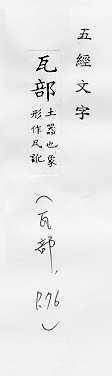 五經文字
瓦部
土器也象
形作瓦訛
(瓦部,
P.76)